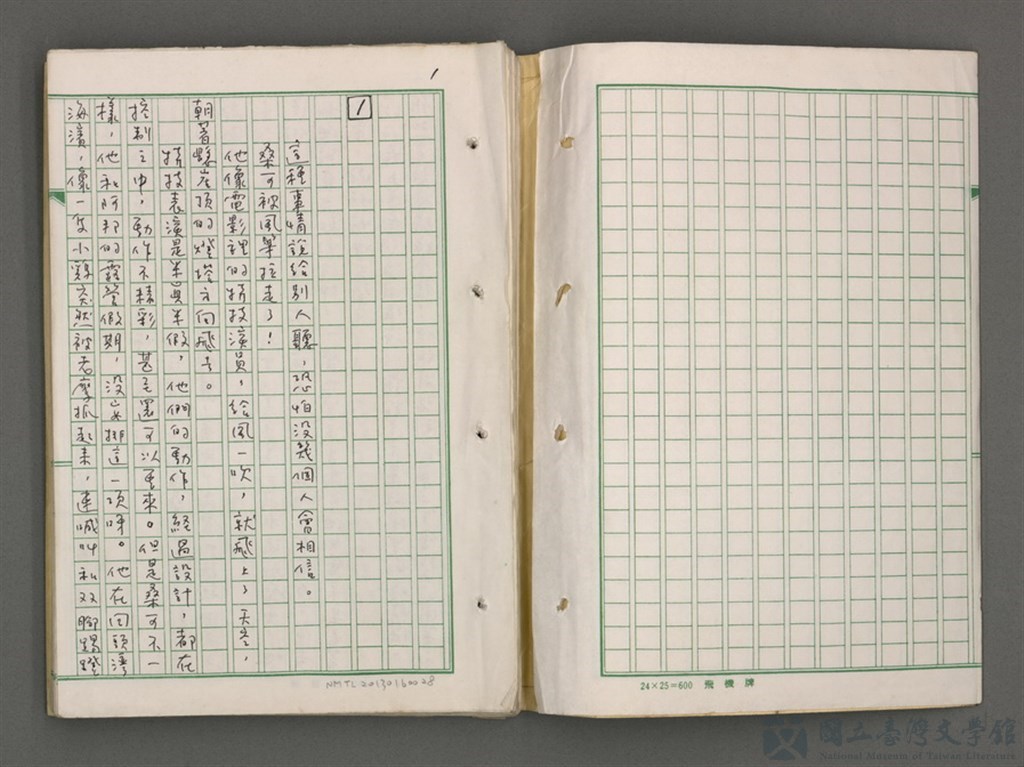 1
1
這種事情說給別人聽，恐怕沒幾個人會相信。
桑可被風箏拉走了！
他像電影裡的特技演員，給風一吹，就飛上了天空，
朝著懸崖頂的燈塔方向飛去。
特技表演是半真半假，他們的動作，經過設計，都在
控制之中，動作不精彩，甚至還可以重來。但是桑可不一
樣，他和阿邦的露營假期，沒安排這一項呀。他在回頭灣
海濱，像一隻小雞突然被老鷹抓起來，連喊叫和双腳踢蹬
NMTL20130160028
24×25=600 飛機牌
國立臺灣文學館
National Museum of Taiwan Literature